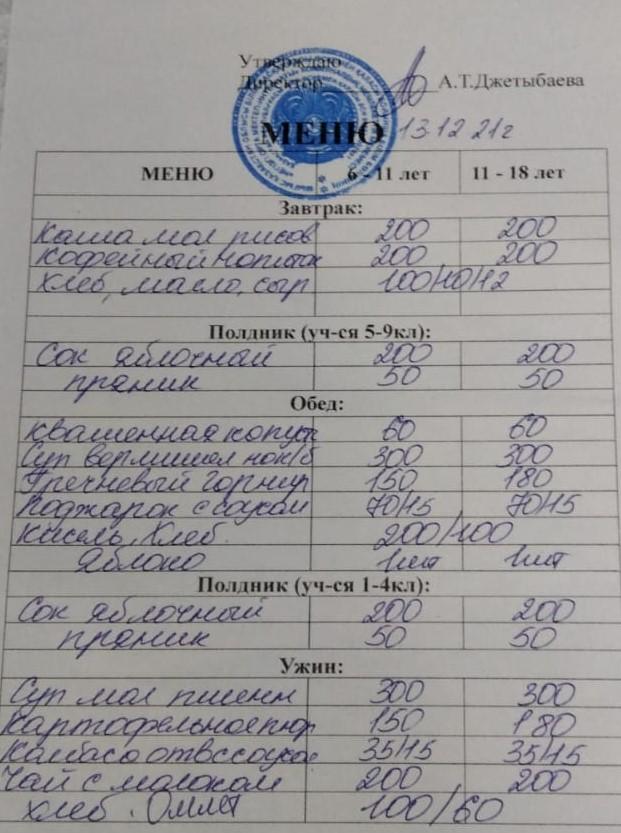 Утверждаю
Директор А.Т.Джетыбаева
МЕНЮ 13.12 21г
МЕНЮ 6 - 11 лет 11 - 18 лет
Завтрак:
Каша мол рисов 200 200
Кофейный напиток 200 200
Хлеб, масло, сыр 100/10/12
Полдник (уч-ся 5-9кл):
Сок яблочный 200 200
пряник 50 50
Обед:
квашенная капуст 60 60
Суп вермишел 300 300
Гречневый гарнир 150 180
Поджарок с соусом 70/15 70/15
Кисель, Хлеб. 200/100
Яблоко 1шт 1шт
Полдник (уч-ся 1-4кл):
Сок яблочный 200 200
пряник 50 50
Ужин:
Суп мол пшенн 300 300
Картофельное пюр 150 180
Колбаса отв с соусом 35/15 35/15
Чай с молоком 200 200
хлеб. Омлет 100/60